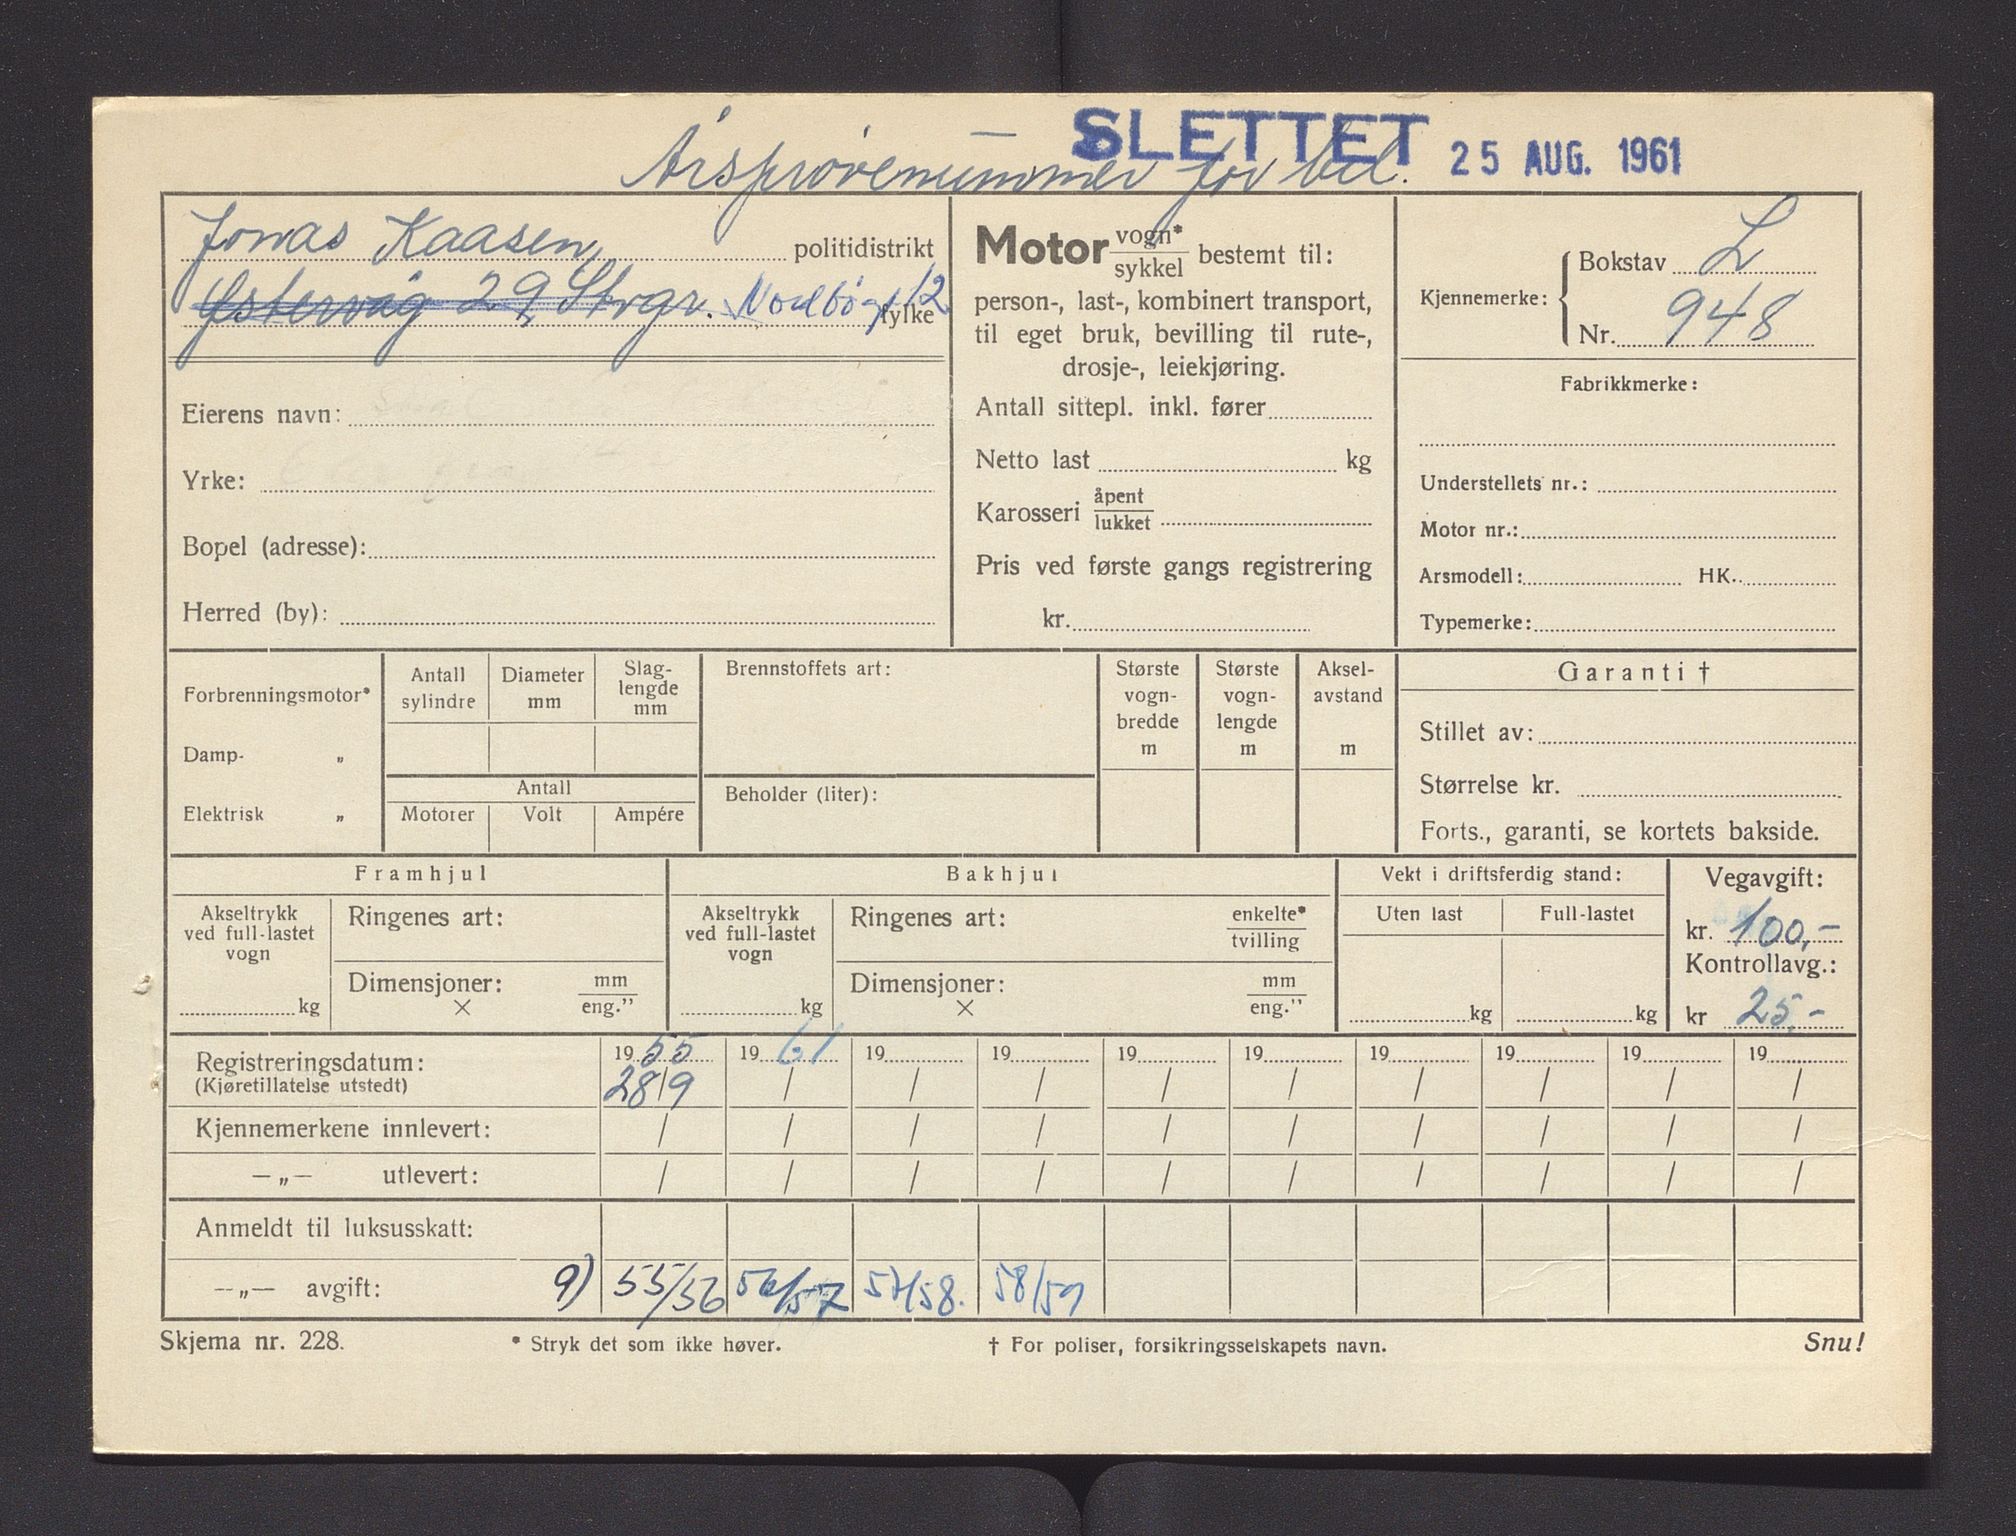 SLETTET 25 AUG. 1961
Årsprøvenummer for bil.
Jonas Kaasen politidistrikt
Østervåg 29, Stvgr. Nordbøgt 12 fylke
Eierens navn:
Yrke:
Bopel (adresse):
Herred (by):
Motor vogn* sykkel bestemt til:
person-, last-, kombinert transport,
til eget bruk, bevilling til rute-,
drosje-, leiekjøring.
Antall sittepl. inkl. fører
Netto last kg
Karosseri åpent lukket
Pris ved første gangs registrering
kr.
Kjennemerke: Bokstav L
Nr. 948
Fabrikkmerke:
Understellets nr.:
Motor nr.:
Arsmodell: HK.
Typemerke:
Forbrenningsmotor*
Damp- „
Elektrisk „
Antall sylindre
Diameter mm
Slag-
lengde
mm
Antall
Motorer Volt Ampére
Brennstoffets art:
Beholder (liter):
Største
vogn-
bredde
m
Største
vogn-
lengde
m
Aksel-
avstand
m
Garanti †
Stillet av:
Størrelse kr.
Forts., garanti, se kortets bakside.
Framhjul
Akseltrykk
ved full-lastet
vogn
kg
Ringenes art:
Dimensjoner: mm
× eng."
Bakhjul
Akseltrykk
ved full-lastet
vogn
kg
Ringenes art: enkelte* tvilling
Dimensjoner: mm
× eng."
Vekt i driftsferdig stand:
Uten last Full-lastet
kg kg
Vegavgift:
kr. 100,-
Kontrollavg.:
kr 25,-
Registreringsdatum: 19 55 19 61 19 19 19 19 19 19 19 19
(Kjøretillatelse utstedt) 28/9 / / / / / / / / /
Kjennemerkene innlevert: / / / / / / / / / /
—„— utlevert: / / / / / / / / / /
Anmeldt til luksusskatt:
—„— avgift: 9) 55/56 56/57 57/58. 58/59
Skjema nr. 228. * Stryk det som ikke høver. † For poliser, forsikringsselskapets navn. Snu!